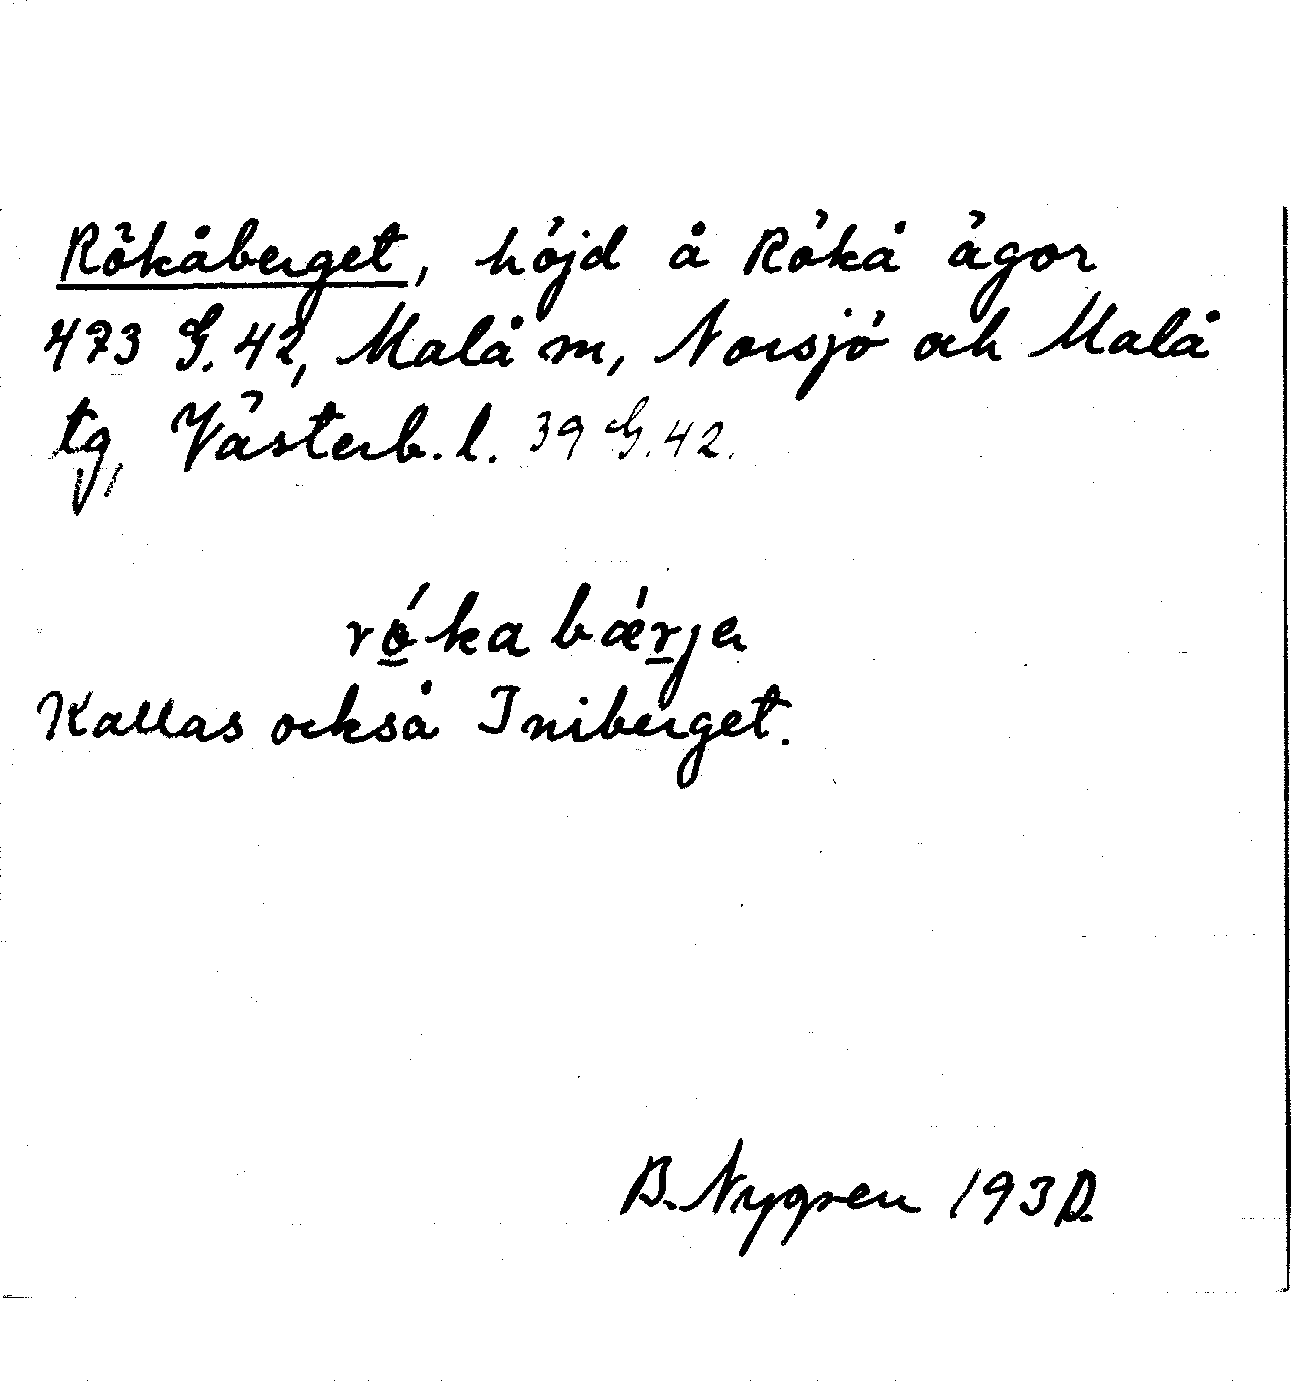 Rökåberget, höjd å Rökå ägor
473 G. 42, Malå m, Norsjö och Malå
tg, Västerb. l. 39 G. 42.
ró̲ka bǽr̲ja
Kallas också Iniberget.
B. Nygren 193